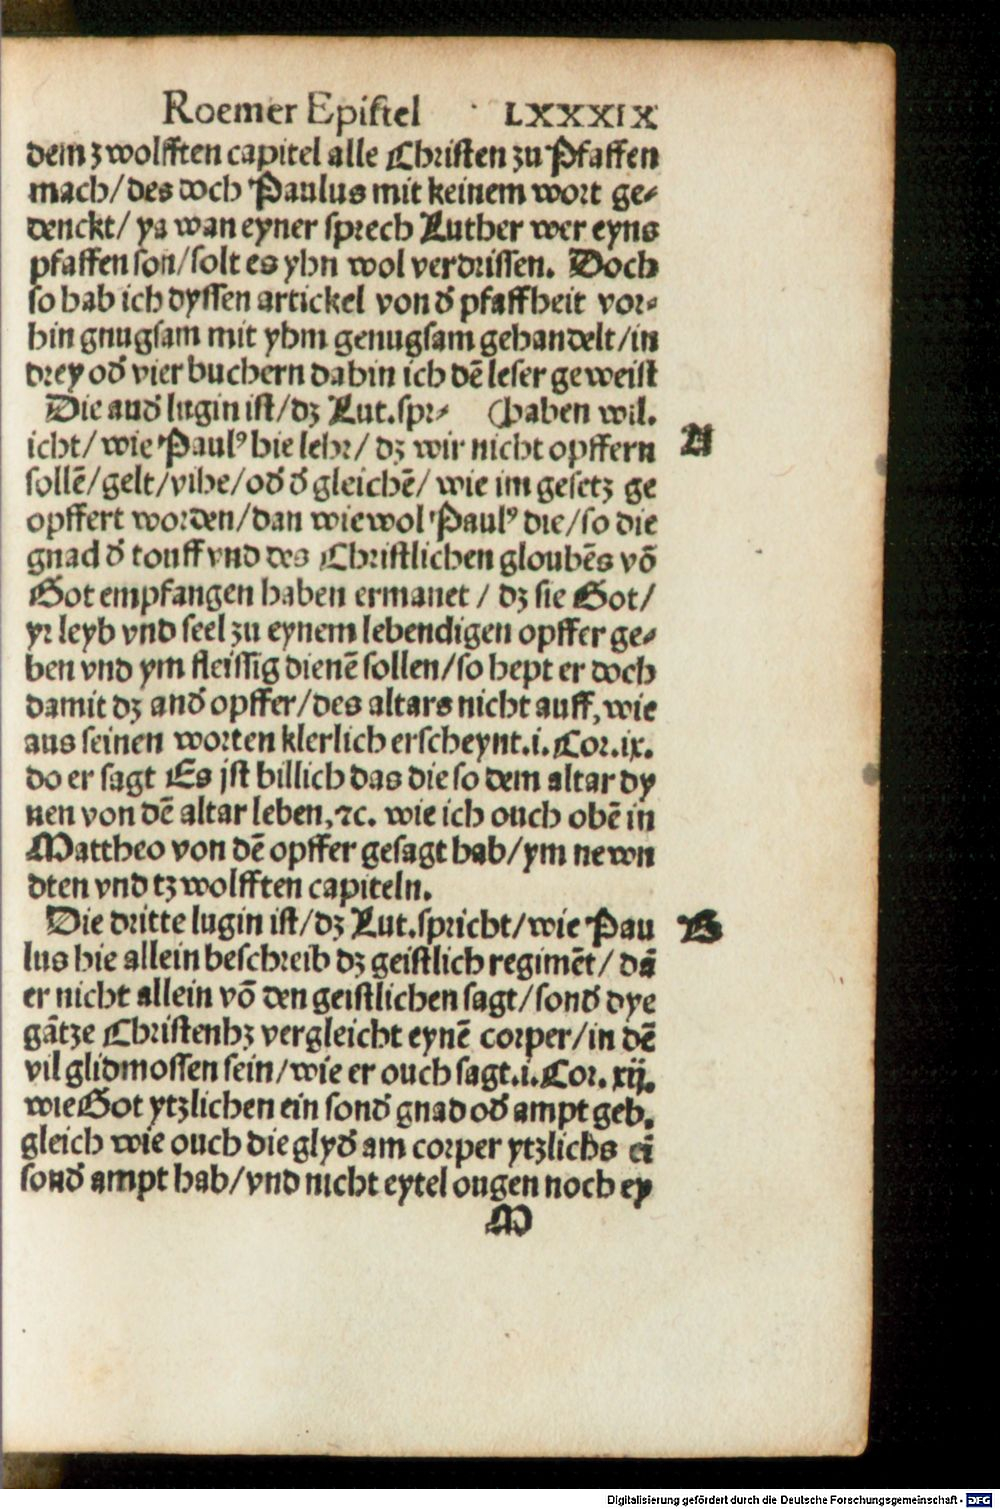 Roemer Epistel LXXXIX
dem zwolfften capitel alle Christen zu Pfaffen
mach/des doch Paulus mit keinem wort ge⸗
denckt/ ya wan eyner sprech Luther wer eyns
pfaffen son/solt es yhn wol verdrissen. Doch
so hab ich dyssen artickel von d̕ pfaffheit vor⸗
hin gnugsam mit yhm genugsam gehandelt/in
drey od̕ vier buchern dahin ich dē leser geweist
Die and̕ lugin ist/dz Lut.spr⸗ (haben wil.
icht/wie Paulꝰ hie lehr/ dz wir nicht opffern
sollē/gelt/vihe/od̕ d̕ gleichē/ wie im gesetz ge
opffert worden/dan wiewol Paulꝰ die/so die
gnad d̕ touff vnd des Christlichen gloubēs vō
Got empfangen haben ermanet / dz sie Got/
yr leyb vnd seel zu eynem lebendigen opffer ge⸗
ben vnd ym fleissig dienē sollen/so hept er doch
damit dz and̕ opffer/des altars nicht auff, wie
aus seinen worten klerlich erscheynt.i.Cor.ix.
do er sagt Es jst billich das die so dem altar dy
nen von dē altar leben,⁊c. wie ich ouch obē in
Mattheo von dē opffer gesagt hab/ym newn
dten vnd tzwolfften capiteln.
Die dritte lugin ist/dz Lut.spricht/wie Pau
lus hie allein beschreib dz geistlich regimēt/ dā
er nicht allein vō den geistlichen sagt/sond̕ dye
gātze Christenhz vergleicht eynē corper/in dē
vil glidmossen sein/wie er ouch sagt.i.Cor. xij.
wie Got ytzlichen ein sond̕ gnad od̕ ampt geb.
gleich wie ouch die glyd̕ am corper ytzlichs eī
sond̕ ampt hab/vnd nicht eytel ougen noch ey
M
A
B
Digitalisierung gefördert durch die Deutsche Forschungsgemeinschaft - DFG